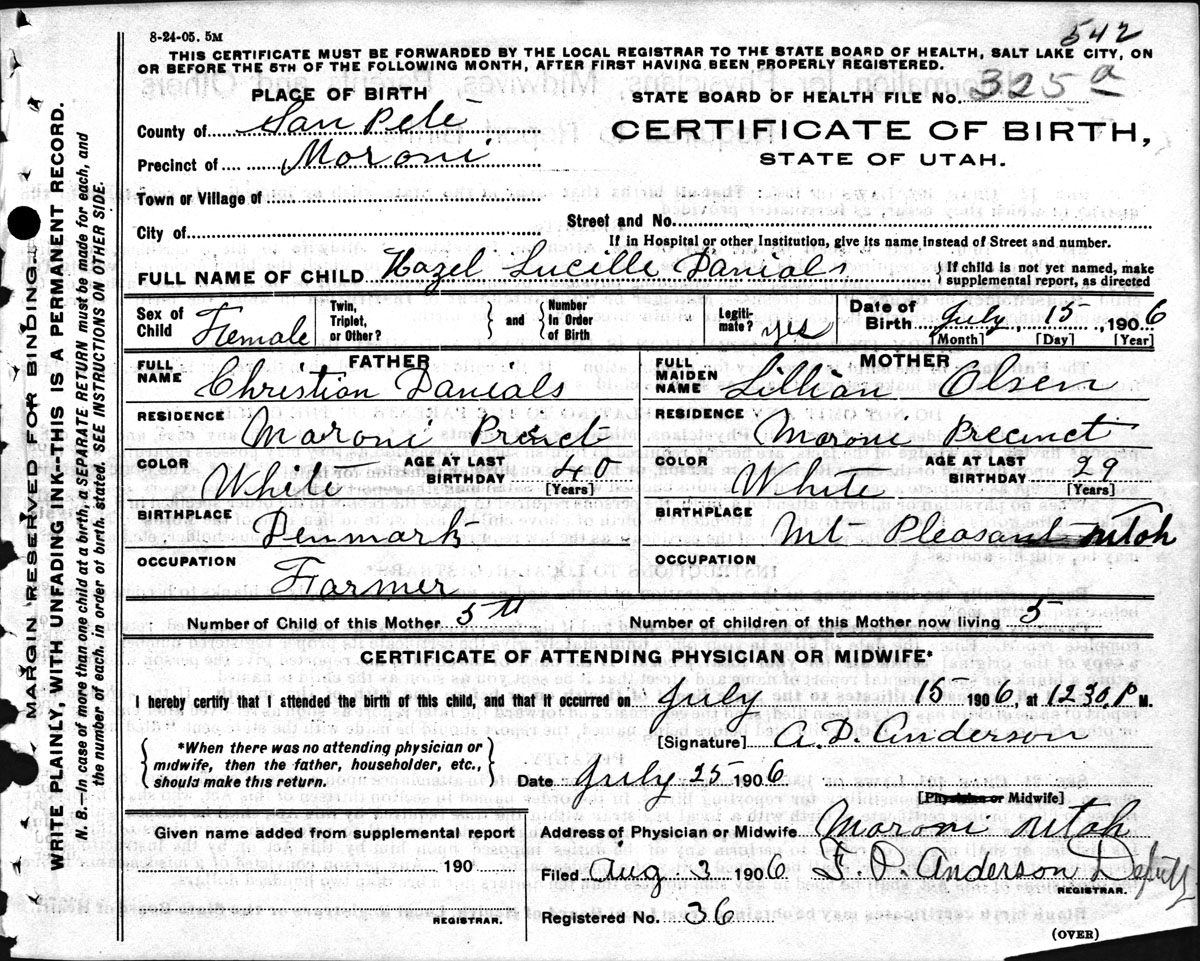 8-24-05. 5M
542
THIS CERTIFICATE MUST BE FORWARDED BY THE LOCAL REGISTRAR TO THE STATE BOARD OF HEALTH, SALT LAKE CITY, ON
OR BEFORE THE 5TH OF THE FOLLOWING MONTH, AFTER FIRST HAVING BEEN PROPERLY REGISTERED.
PLACE OF BIRTH
STATE BOARD OF HEALTH FILE NO. 325 a
County of San Pete
CERTIFICATE OF BIRTH,
Precinct of Moroni
STATE OF UTAH.
Town or Village of
City of
Street and No.
If in Hospital or other Institution, give its name instead of Street and number.
FULL NAME OF CHILD Hazel Lucille Danials
{If child is not yet named, make
supplemental report, as directed
Sex of Child Female
Twin, Triplet, or Other? } and { Number In Order of Birth
Legiti-mate? yes
Date of Birth July, 15, 1906
[Month] [Day] [Year]
FATHER
MOTHER
FULL NAME Christian Danials
FULL MAIDEN NAME Lillian Olsen
RESIDENCE
RESIDENCE
Maroni Princt
Moroni Precinct
COLOR White
AGE AT LAST BIRTHDAY 40 [Years]
COLOR White
AGE AT LAST BIRTHDAY 29 [Years]
BIRTHPLACE
BIRTHPLACE
Denmark
Mt Pleasant Utah
OCCUPATION
OCCUPATION
Farmer
Number of Child of this Mother 5th
Number of children of this Mother now living 5
CERTIFICATE OF ATTENDING PHYSICIAN OR MIDWIFE*
I hereby certify that I attended the birth of this child, and that it occurred on July 15 1906, at 12 30, P M.
[Signature] A. D. Anderson
{*When there was no attending physician or
midwife, then the father, householder, etc.,
should make this return.}
Date July 25 1906
[Physician or Midwife]
Given name added from supplemental report
190
REGISTRAR.
Address of Physician or Midwife Maroni Utah
Filed Aug 3 1906 F. P. Anderson Deputy
REGISTRAR.
Registered No. 36
(OVER)
MARGIN RESERVED FOR BINDING.
WRITE PLAINLY, WITH UNFADING INK-THIS IS A PERMANENT RECORD.
N. B.—In case of more than one child at a birth, a SEPARATE RETURN must be made for each, and
the number of each, in order of birth, stated. SEE INSTRUCTIONS ON OTHER SIDE.